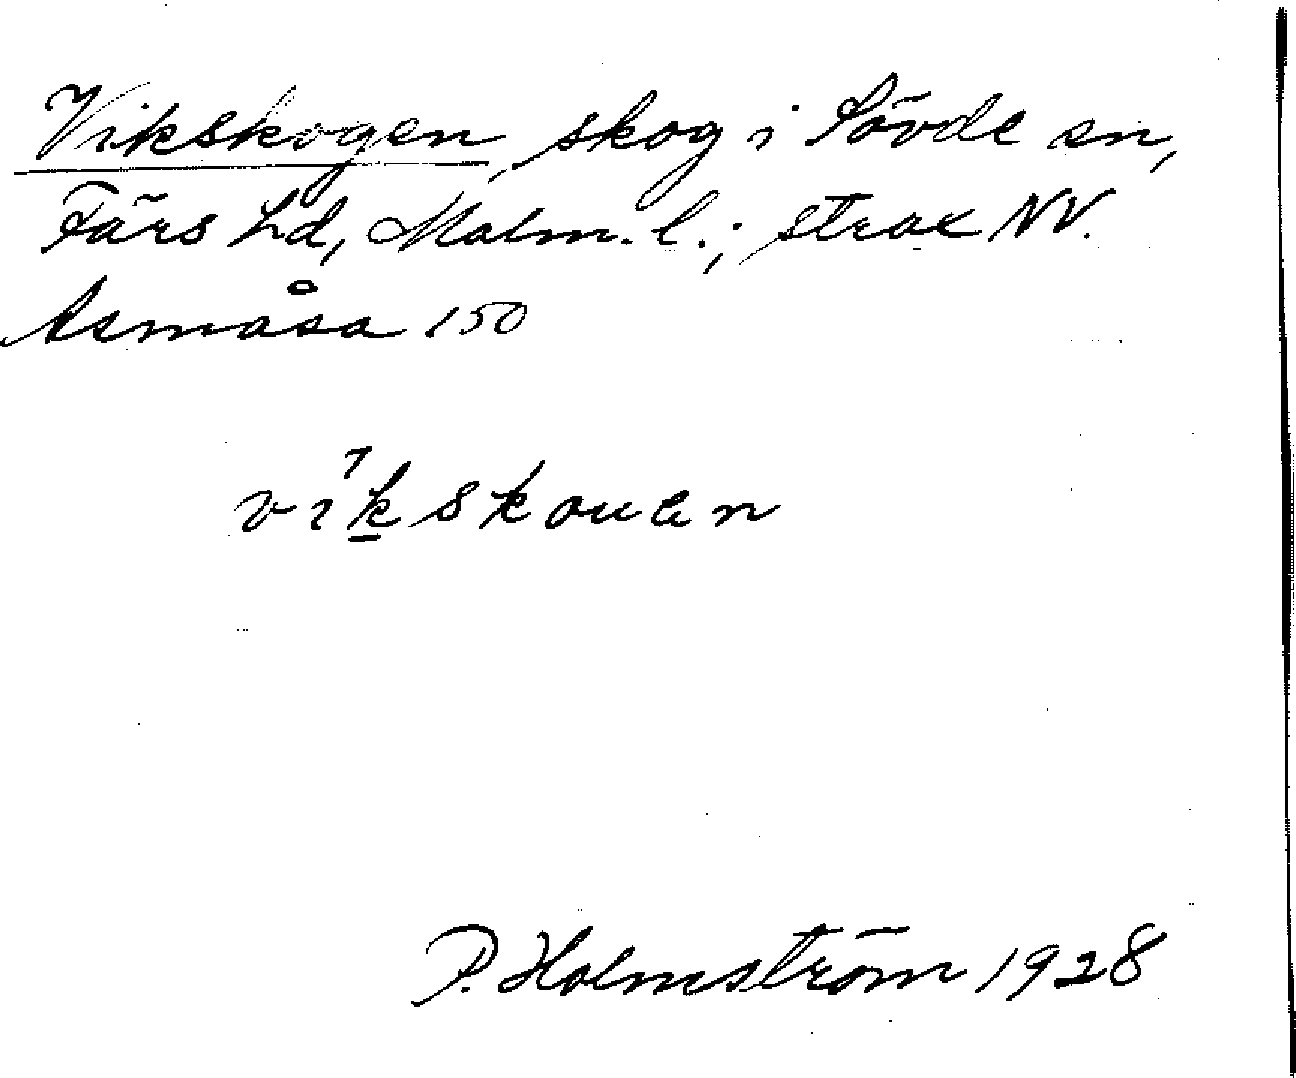 Vikskogen, skog i Sövde sn,
Färs hd, Malm. l.; strax NV.
Asmåsa 150
vikskouen
P. Holmström 1928